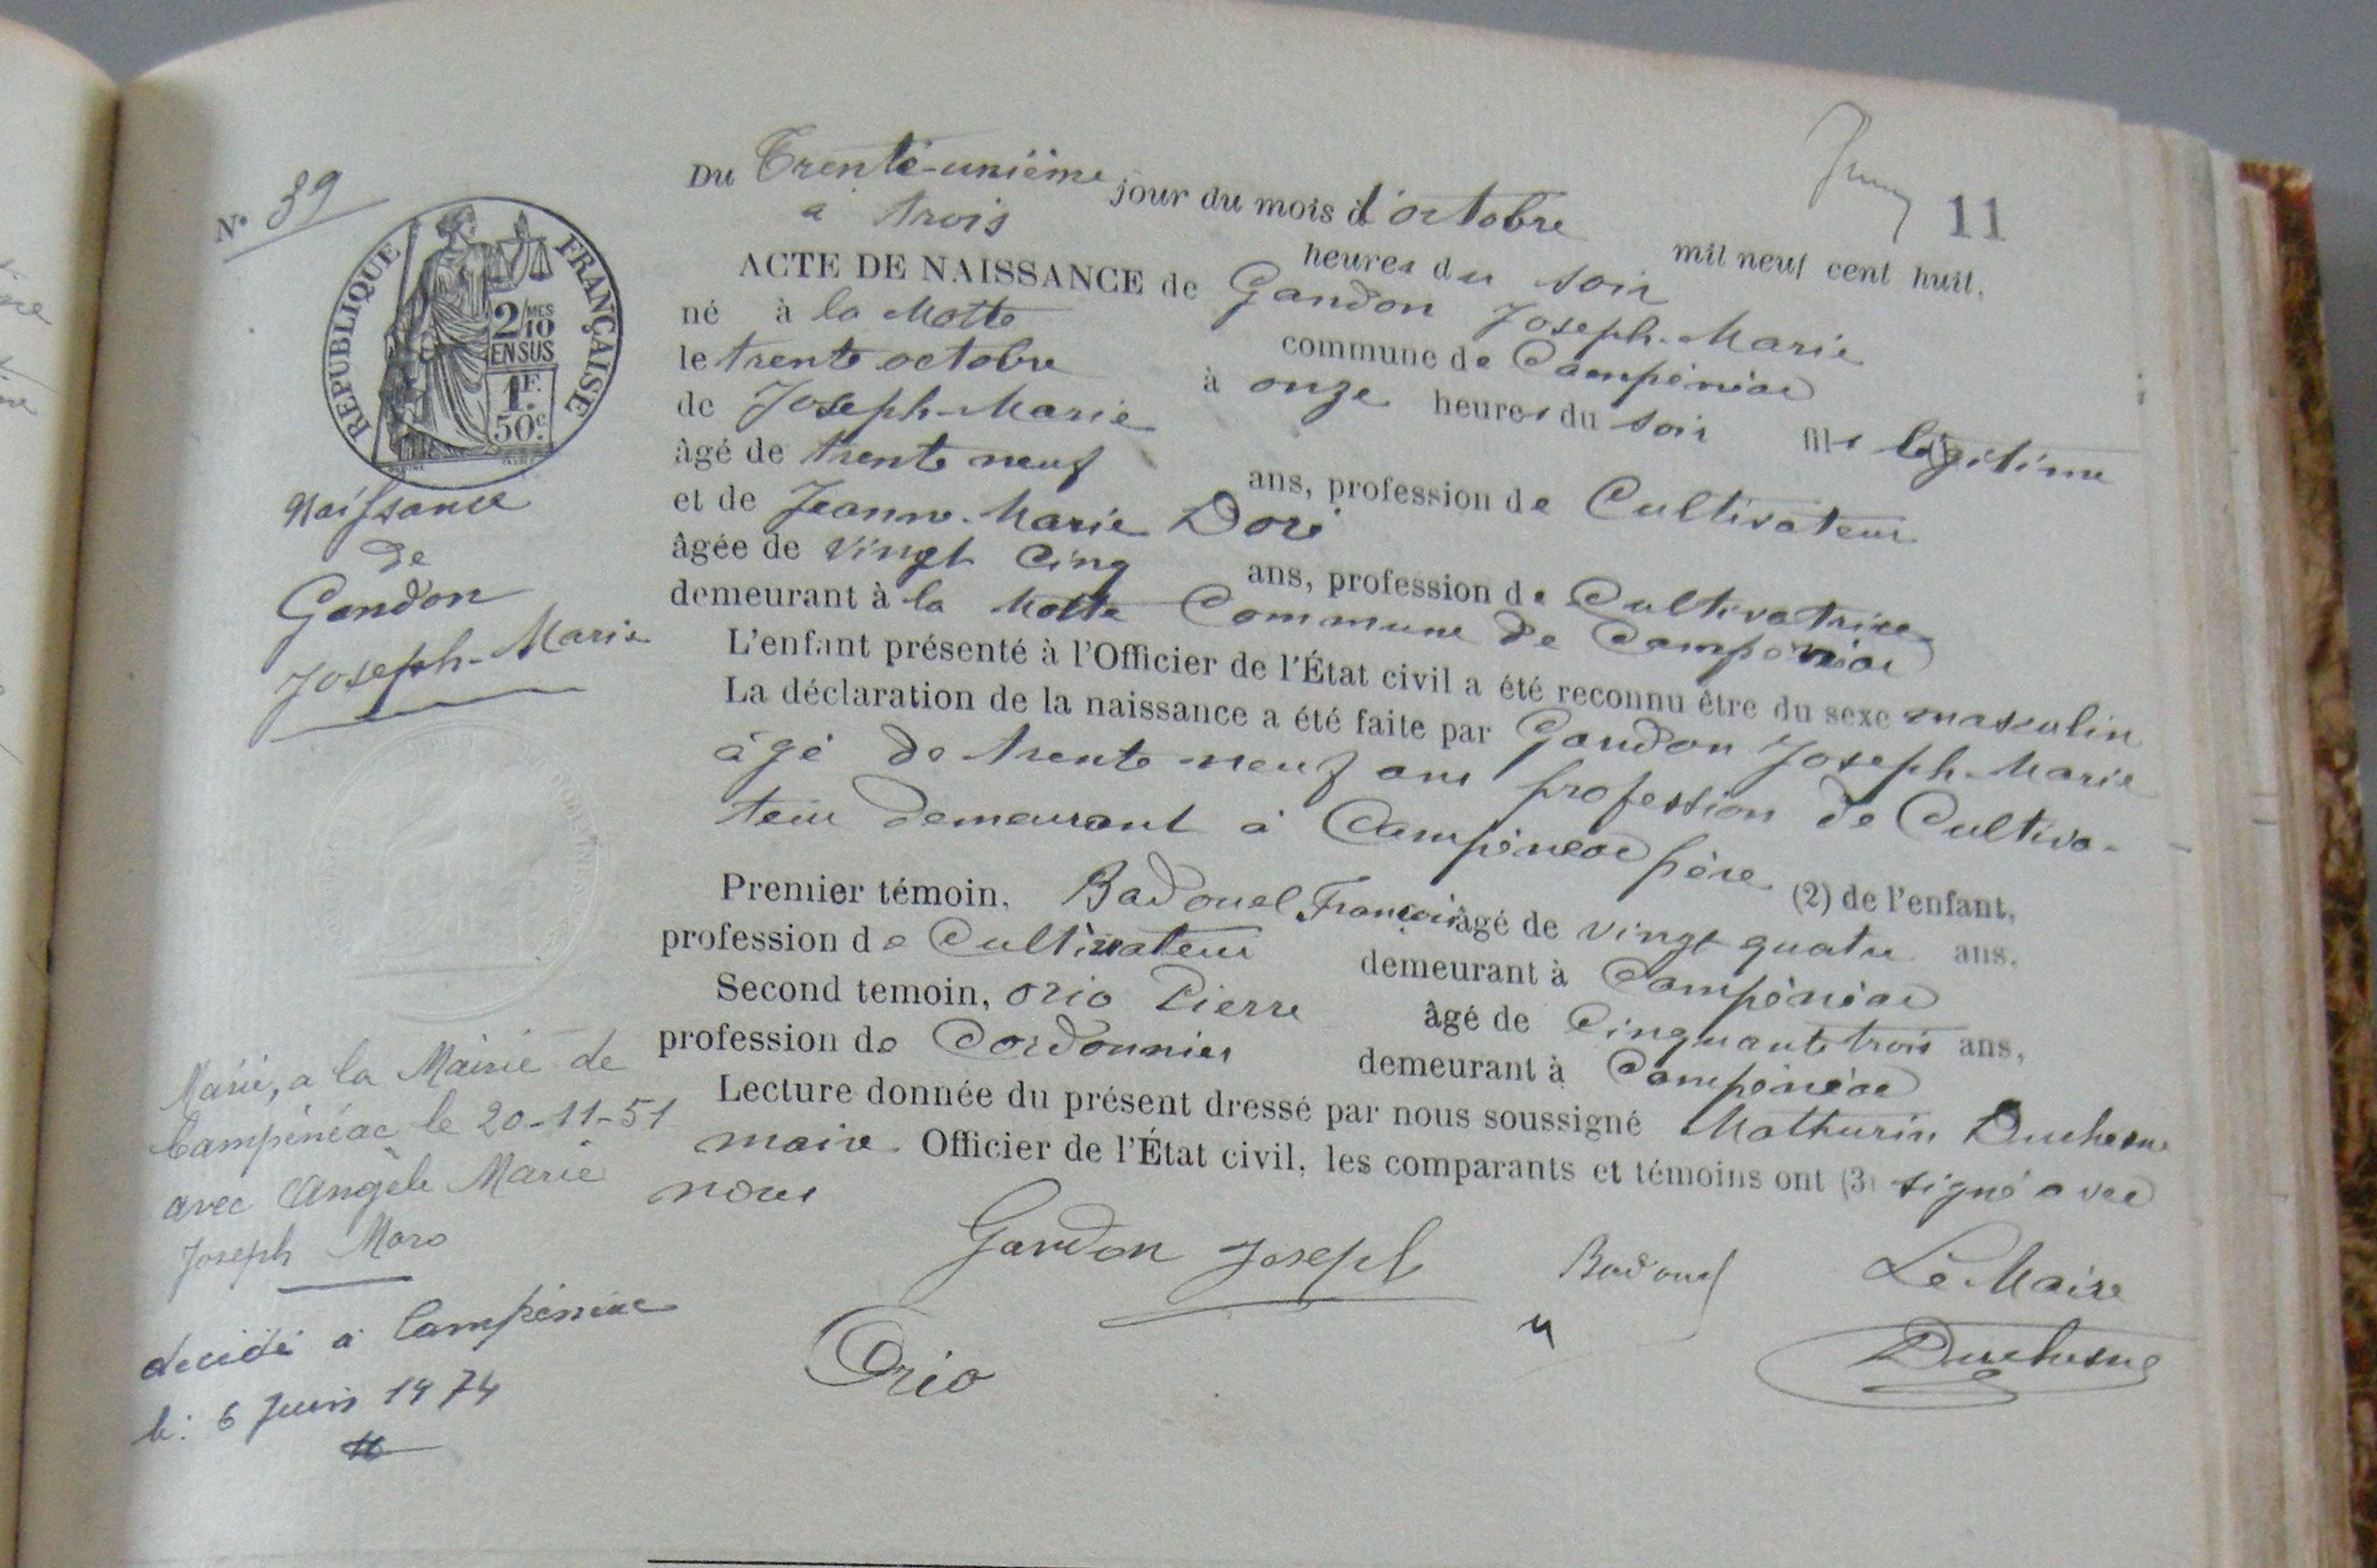 11
N° 39
RÉPUBLIQUE FRANÇAISE
2/10 MES
EN SUS
1F.
50c.
Naissance
de
Gandon
Joseph-Marie
Marié, a la Mairie de
Campénéac le 20-11-51
avec Angèle Marie
Joseph Maro
décédé à Campénéac
le: 6 Juin 1974
Du Trente-unième jour du mois d'octobre mil neuf cent huit,
a trois heures du soir
ACTE DE NAISSANCE de Gandon Joseph-Marie
né à la Motte commune de Campénéac
le trente octobre à onze heures du soir fils légitime
de Joseph-Marie
âgé de trente neuf ans, profession de Cultivateur
et de Jeanne-Marie Doré
âgée de vingt cinq ans, profession de Cultivatrice
demeurant à la Motte Commune de Campénéac
L'enfant présenté à l'Officier de l'État civil a été reconnu être du sexe masculin
La déclaration de la naissance a été faite par Gandon Joseph-Marie
âgé de trente-neuf ans profession de Cultiva-
teur demeurant à Campénéac père (2) de l'enfant.
Premier témoin, Badouel François âgé de vingt quatre ans.
profession de Cultivateur demeurant à Campénéac
Second temoin, Orio Pierre âgé de Cinquante trois ans,
profession de Cordonnier demeurant à Campénéac
Lecture donnée du présent dressé par nous soussigné Mathurin Duchesne
maire Officier de l'État civil, les comparants et témoins ont (3) signé avec
nous
Gandon Joseph Badouel Le Maire
Orio Duchesne